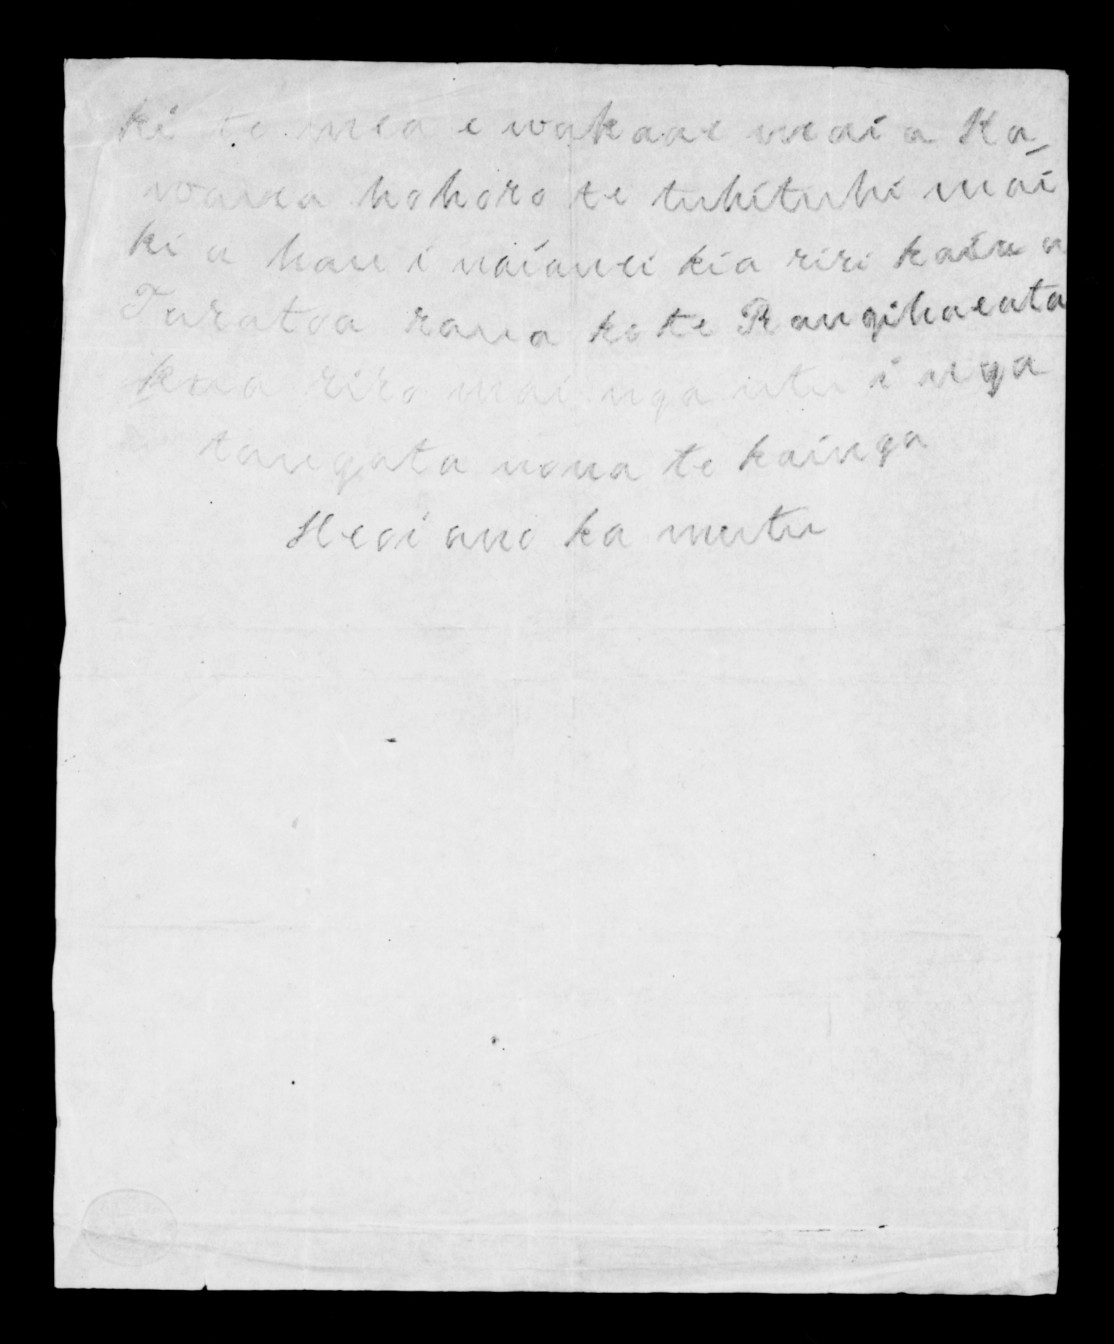 ki te mea e wakaae mai a Ka-
wana hohoro te tuhituhi mai
ki a hau i naianei kia riri a
Turatoa raua ko te Rangihaeata
kua riro mai nga utu i nga
tangata nona te kainga
Heoi ano ka mutu